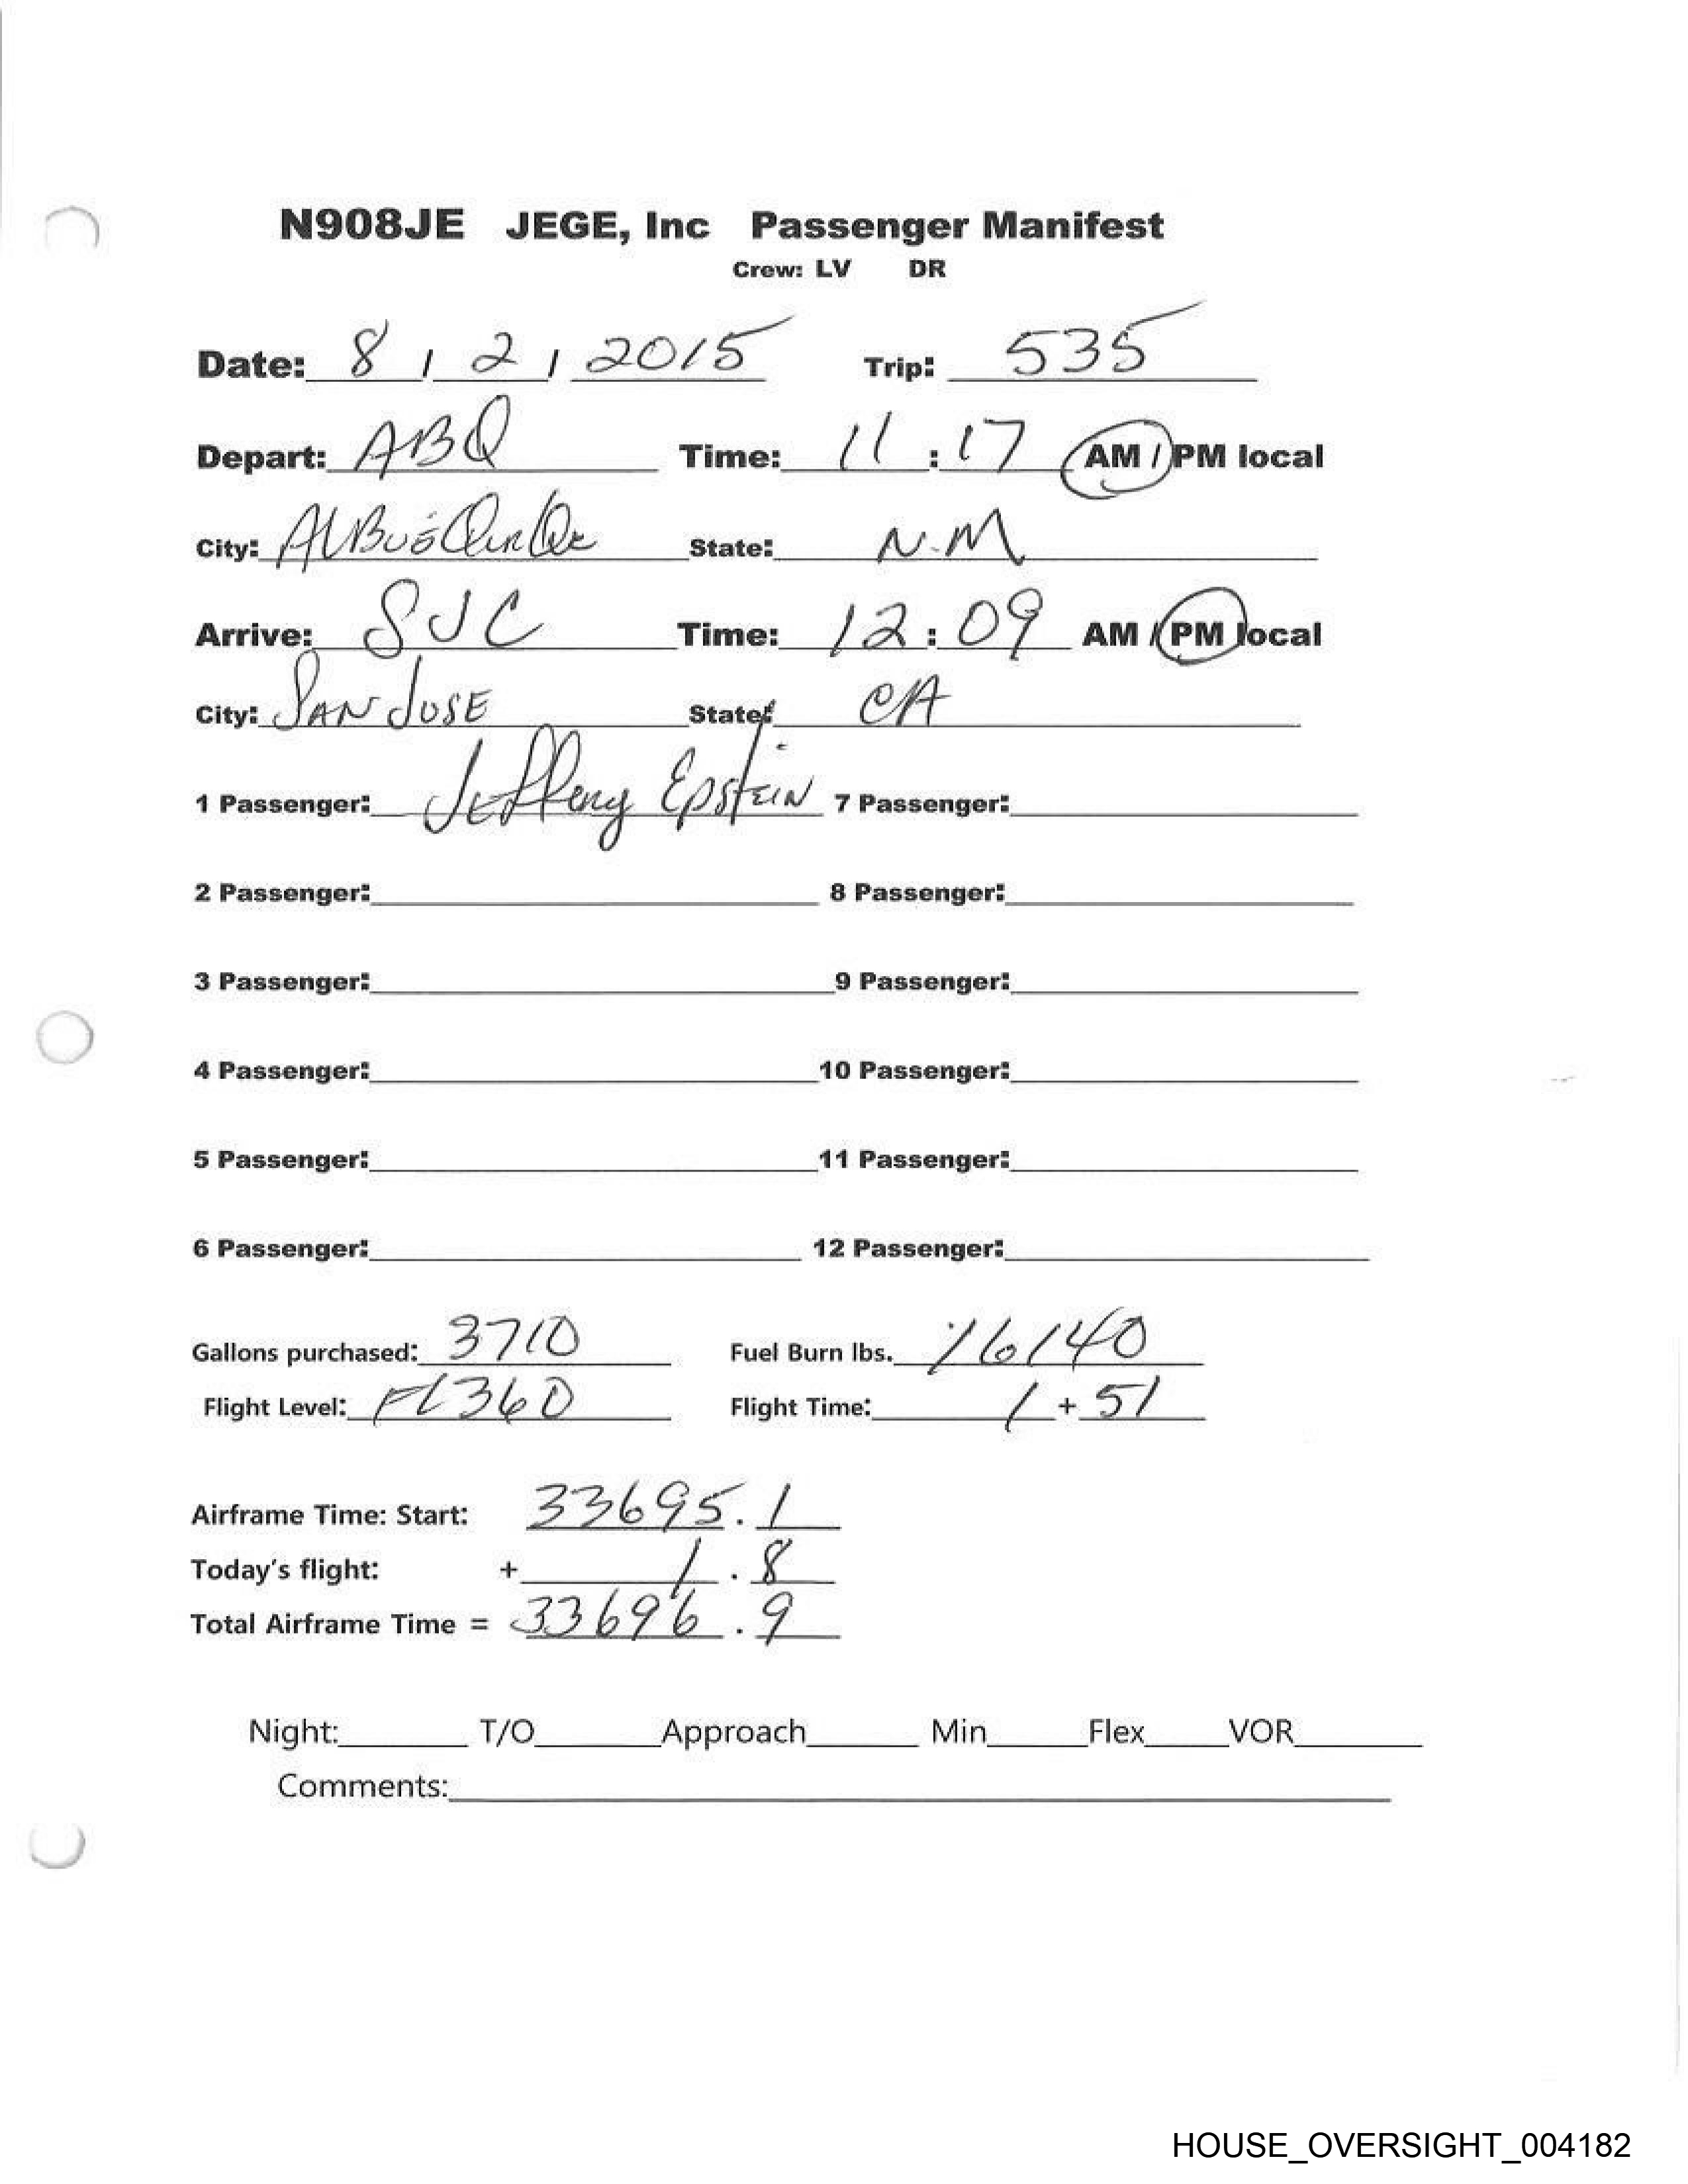 N908JE JEGE, Inc Passenger Manifest
Crew: LV DR
Date: 8 / 2 / 2015 Trip: 535
Depart: ABQ Time: 11 : 17 AM / PM local
City: AlBuqUerQue State: N.M
Arrive: SJC Time: 12 : 09 AM / PM local
City: SAN JOSE State: CA
1 Passenger: Jeffery Epstein 7 Passenger:
2 Passenger: 8 Passenger:
3 Passenger: 9 Passenger:
4 Passenger: 10 Passenger:
5 Passenger: 11 Passenger:
6 Passenger: 12 Passenger:
Gallons purchased: 3710 Fuel Burn lbs. 16140
Flight Level: FL360 Flight Time: 1 + 51
Airframe Time: Start: 33695 . 1
Today's flight: + 1 . 8
Total Airframe Time = 33696 . 9
Night: T/O Approach Min Flex VOR
Comments:
HOUSE_OVERSIGHT_004182